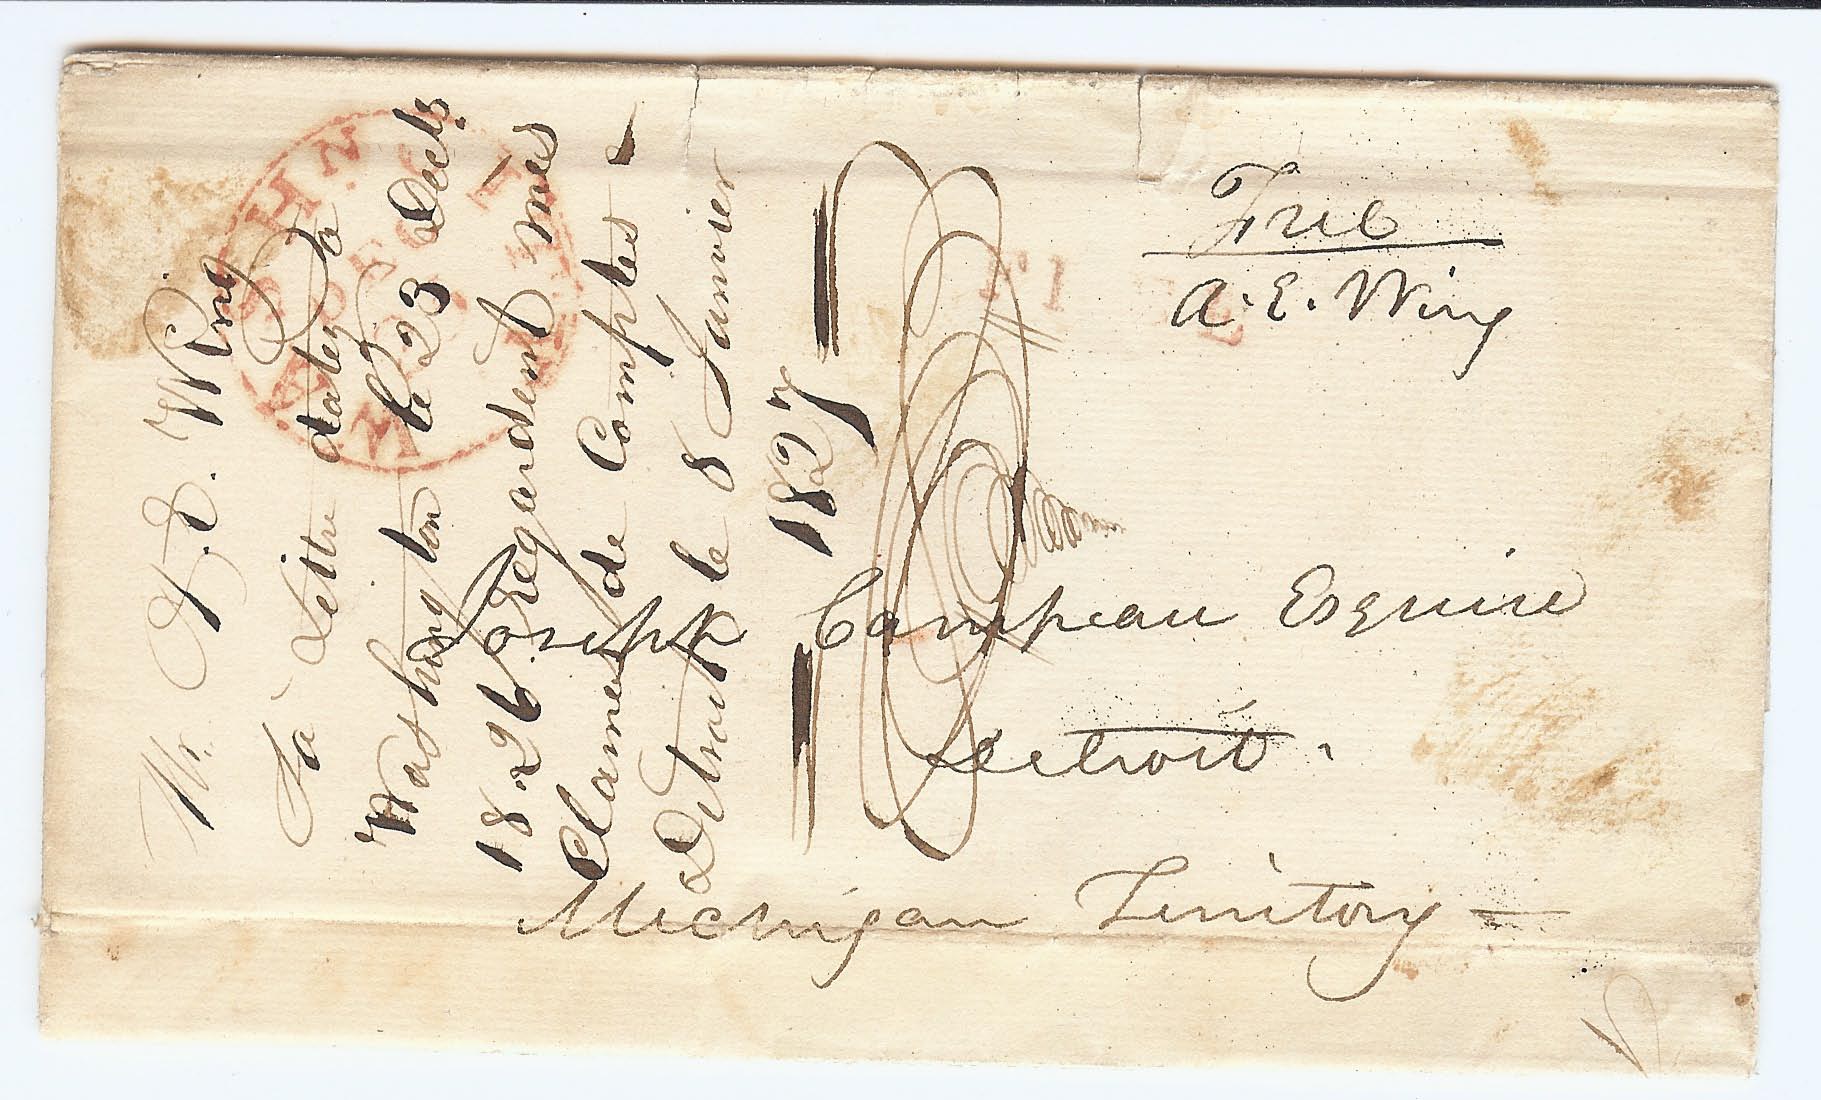 Free
A. E. Wing
Joseph Campeau Esquire
Detroit.
Michigan Territory
Mr. A. E. Wing
Sa Lettre datey a
Washington le 23 Decb.
1826 Regardent mes
Clames de Comptes -
Detroit le 8 Janvier
1827
WASHN
DEC